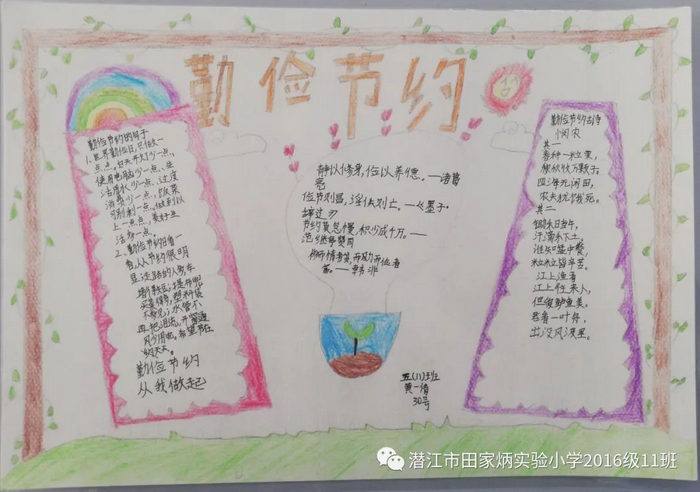 勤俭节约
勤俭节约的句子
1、世界勤俭日,只做大一
点点,白天开灯少一点、
使用电脑少一点、生
活清水少一点、过度
消费少一点、饭菜
别剩
上一点点、美好生
活多一点。
2、勤俭节约日看一
看,从节约很明
水管不
再把泪流,开窗通
风少用电,希望节在
勤俭节约
从我做起
静以修身,俭以养德。——诸葛
亮
俭节则昌,淫佚则亡。——《墨子·
辞过》
节约莫怠慢,积少成千万。——
——韩非
五(11)班
黄一倩
30号
勤俭节约古诗
悯农
其一
春种一粒粟,
秋收万颗子。
四海无闲田,
农夫犹饿死。
其二
锄禾日当午,
汗滴禾下土。
谁知盘中餐,
粒粒皆辛苦。
江上渔者
江上往来人,
但爱鲈鱼美。
君看一叶舟,
出没风波里。
潜江市田家炳实验小学2016级11班